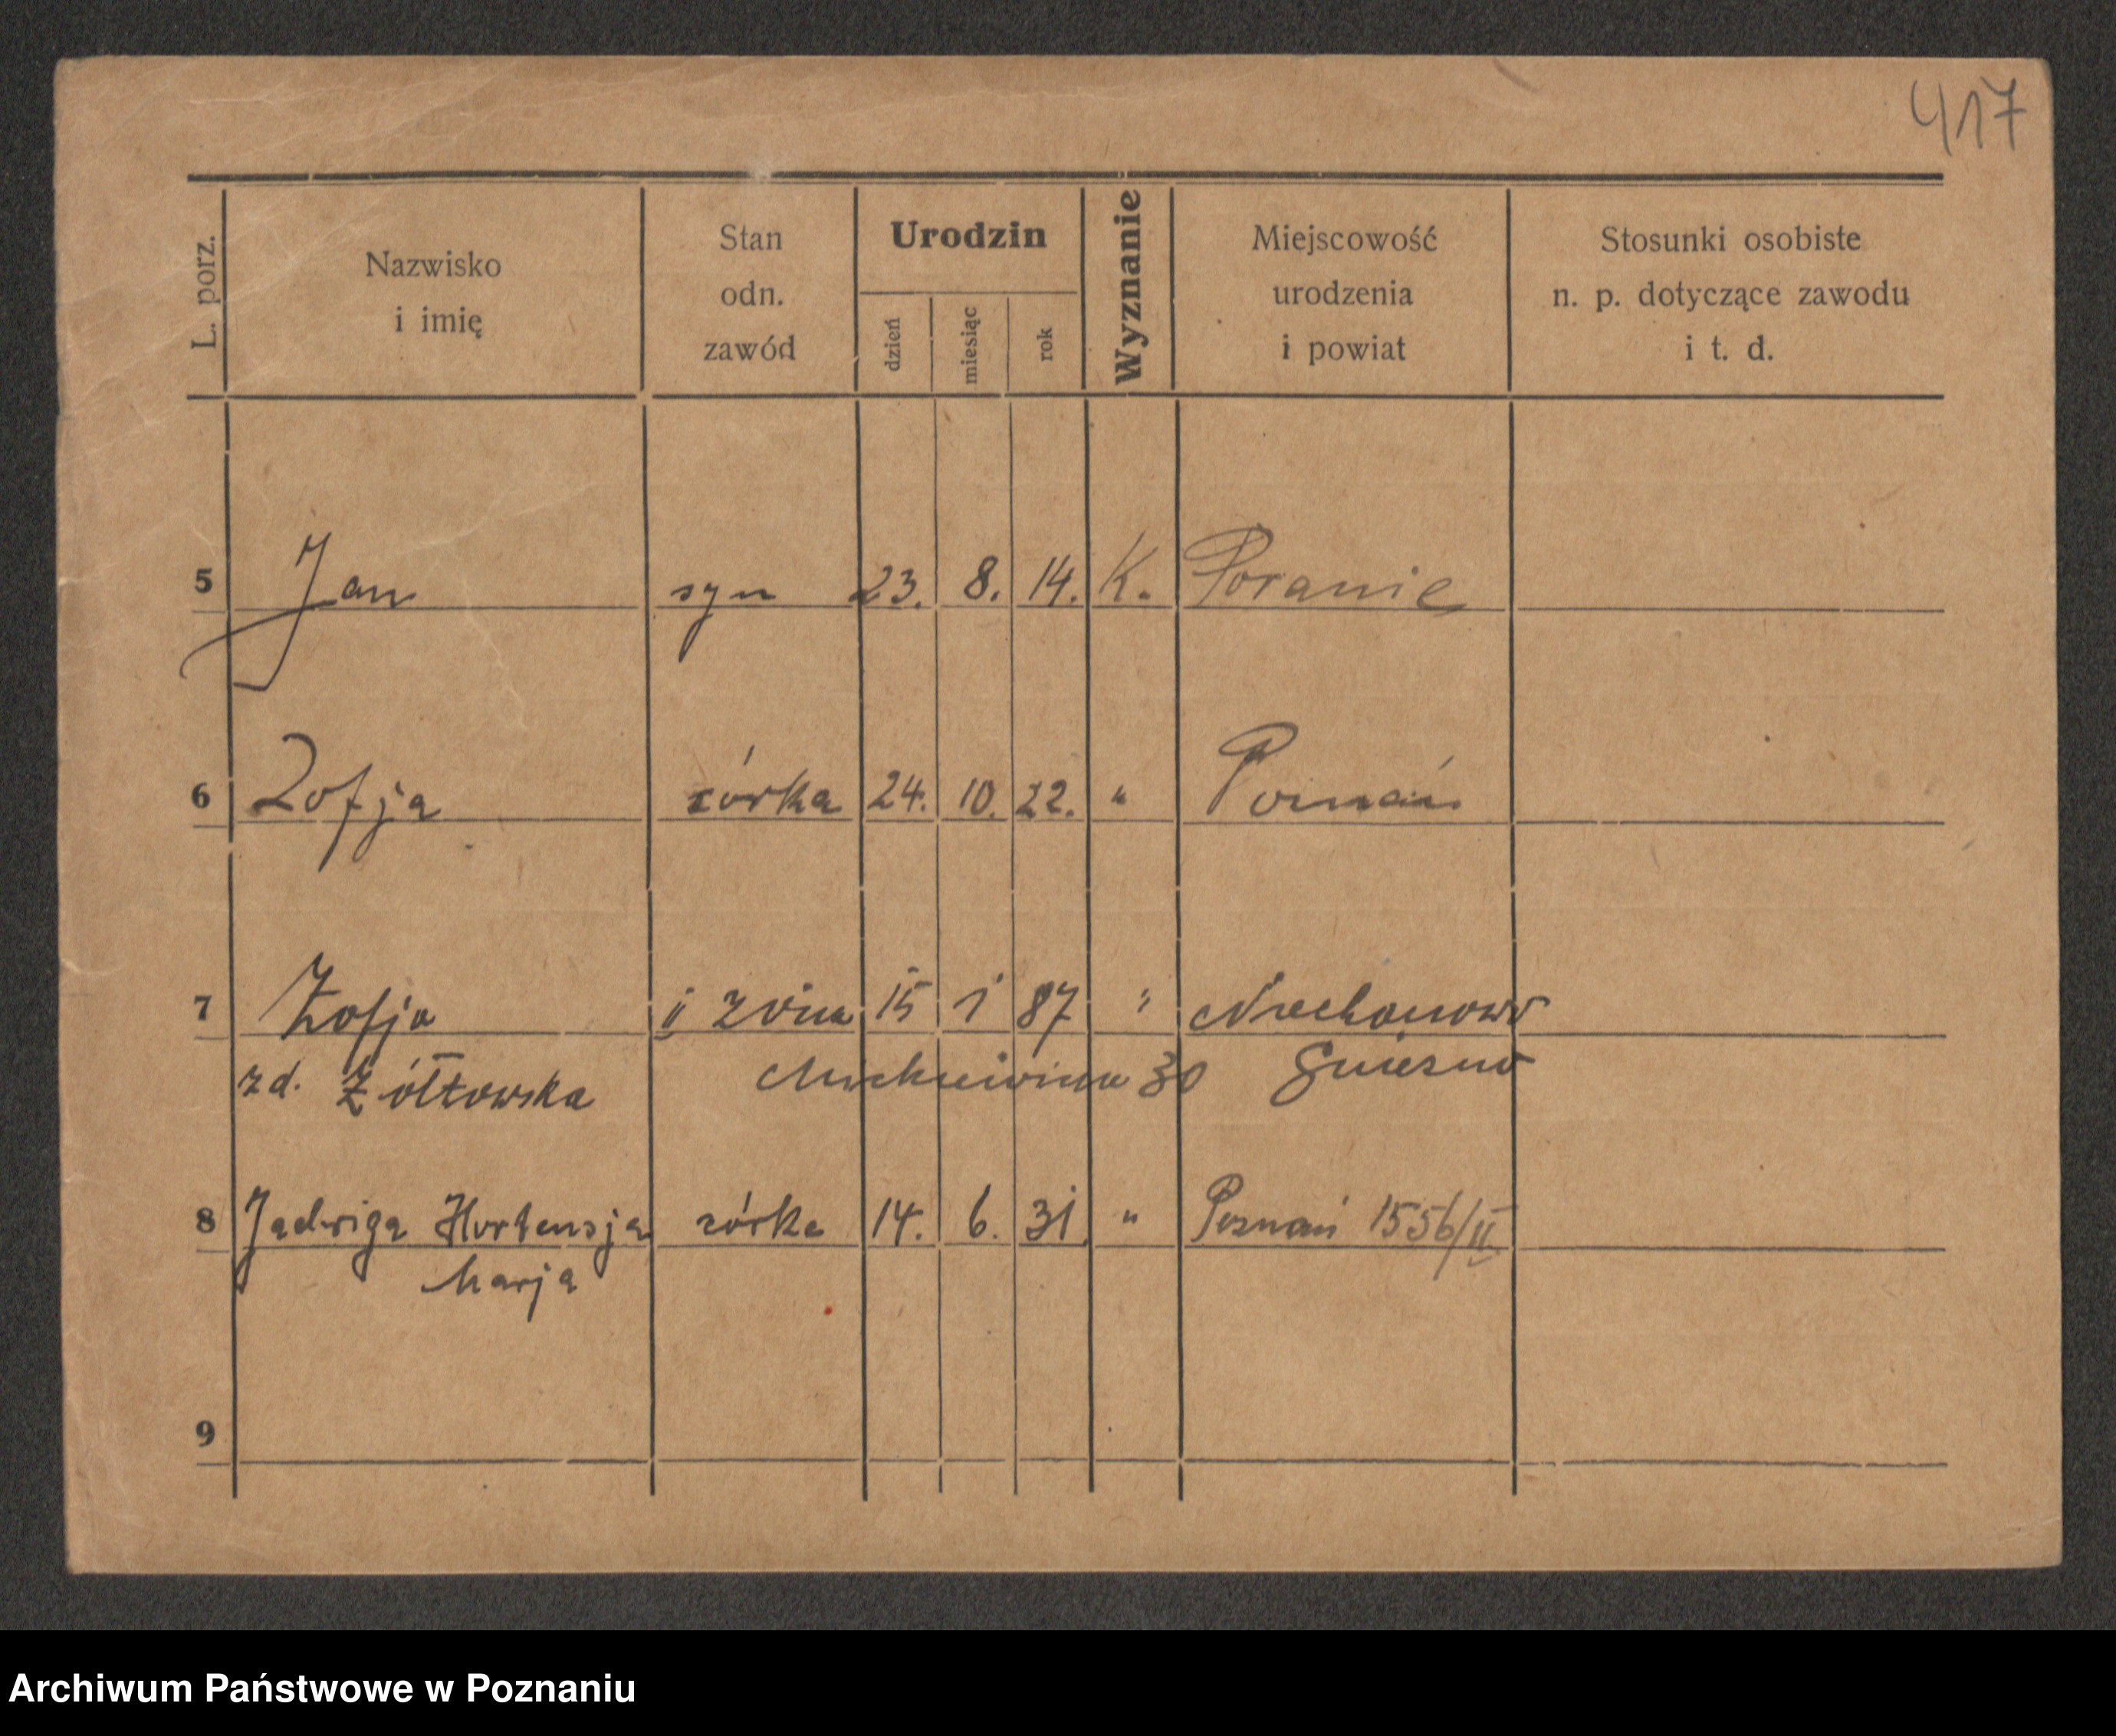 417
L. porz.
Nazwisko
i imię
Stan
odn.
zawód
Urodzin
dzień
miesiąc
rok
Wyznanie
Miejscowość
urodzenia
i powiat
Stosunki osobiste
n. p. dotyczące zawodu
i t. d.
5 Jan syn 23. 8. 14. K.
6 Zofja córka 24. 10. 22. " Poznań
7 Zofja 15 1 87 " Niechanowo
zd. Żółtowska 30 Gniezno
8 Jadwiga Hortensja córka 14. 6. 31. " Poznań 1556/II
Marja
9
Archiwum Państwowe w Poznaniu